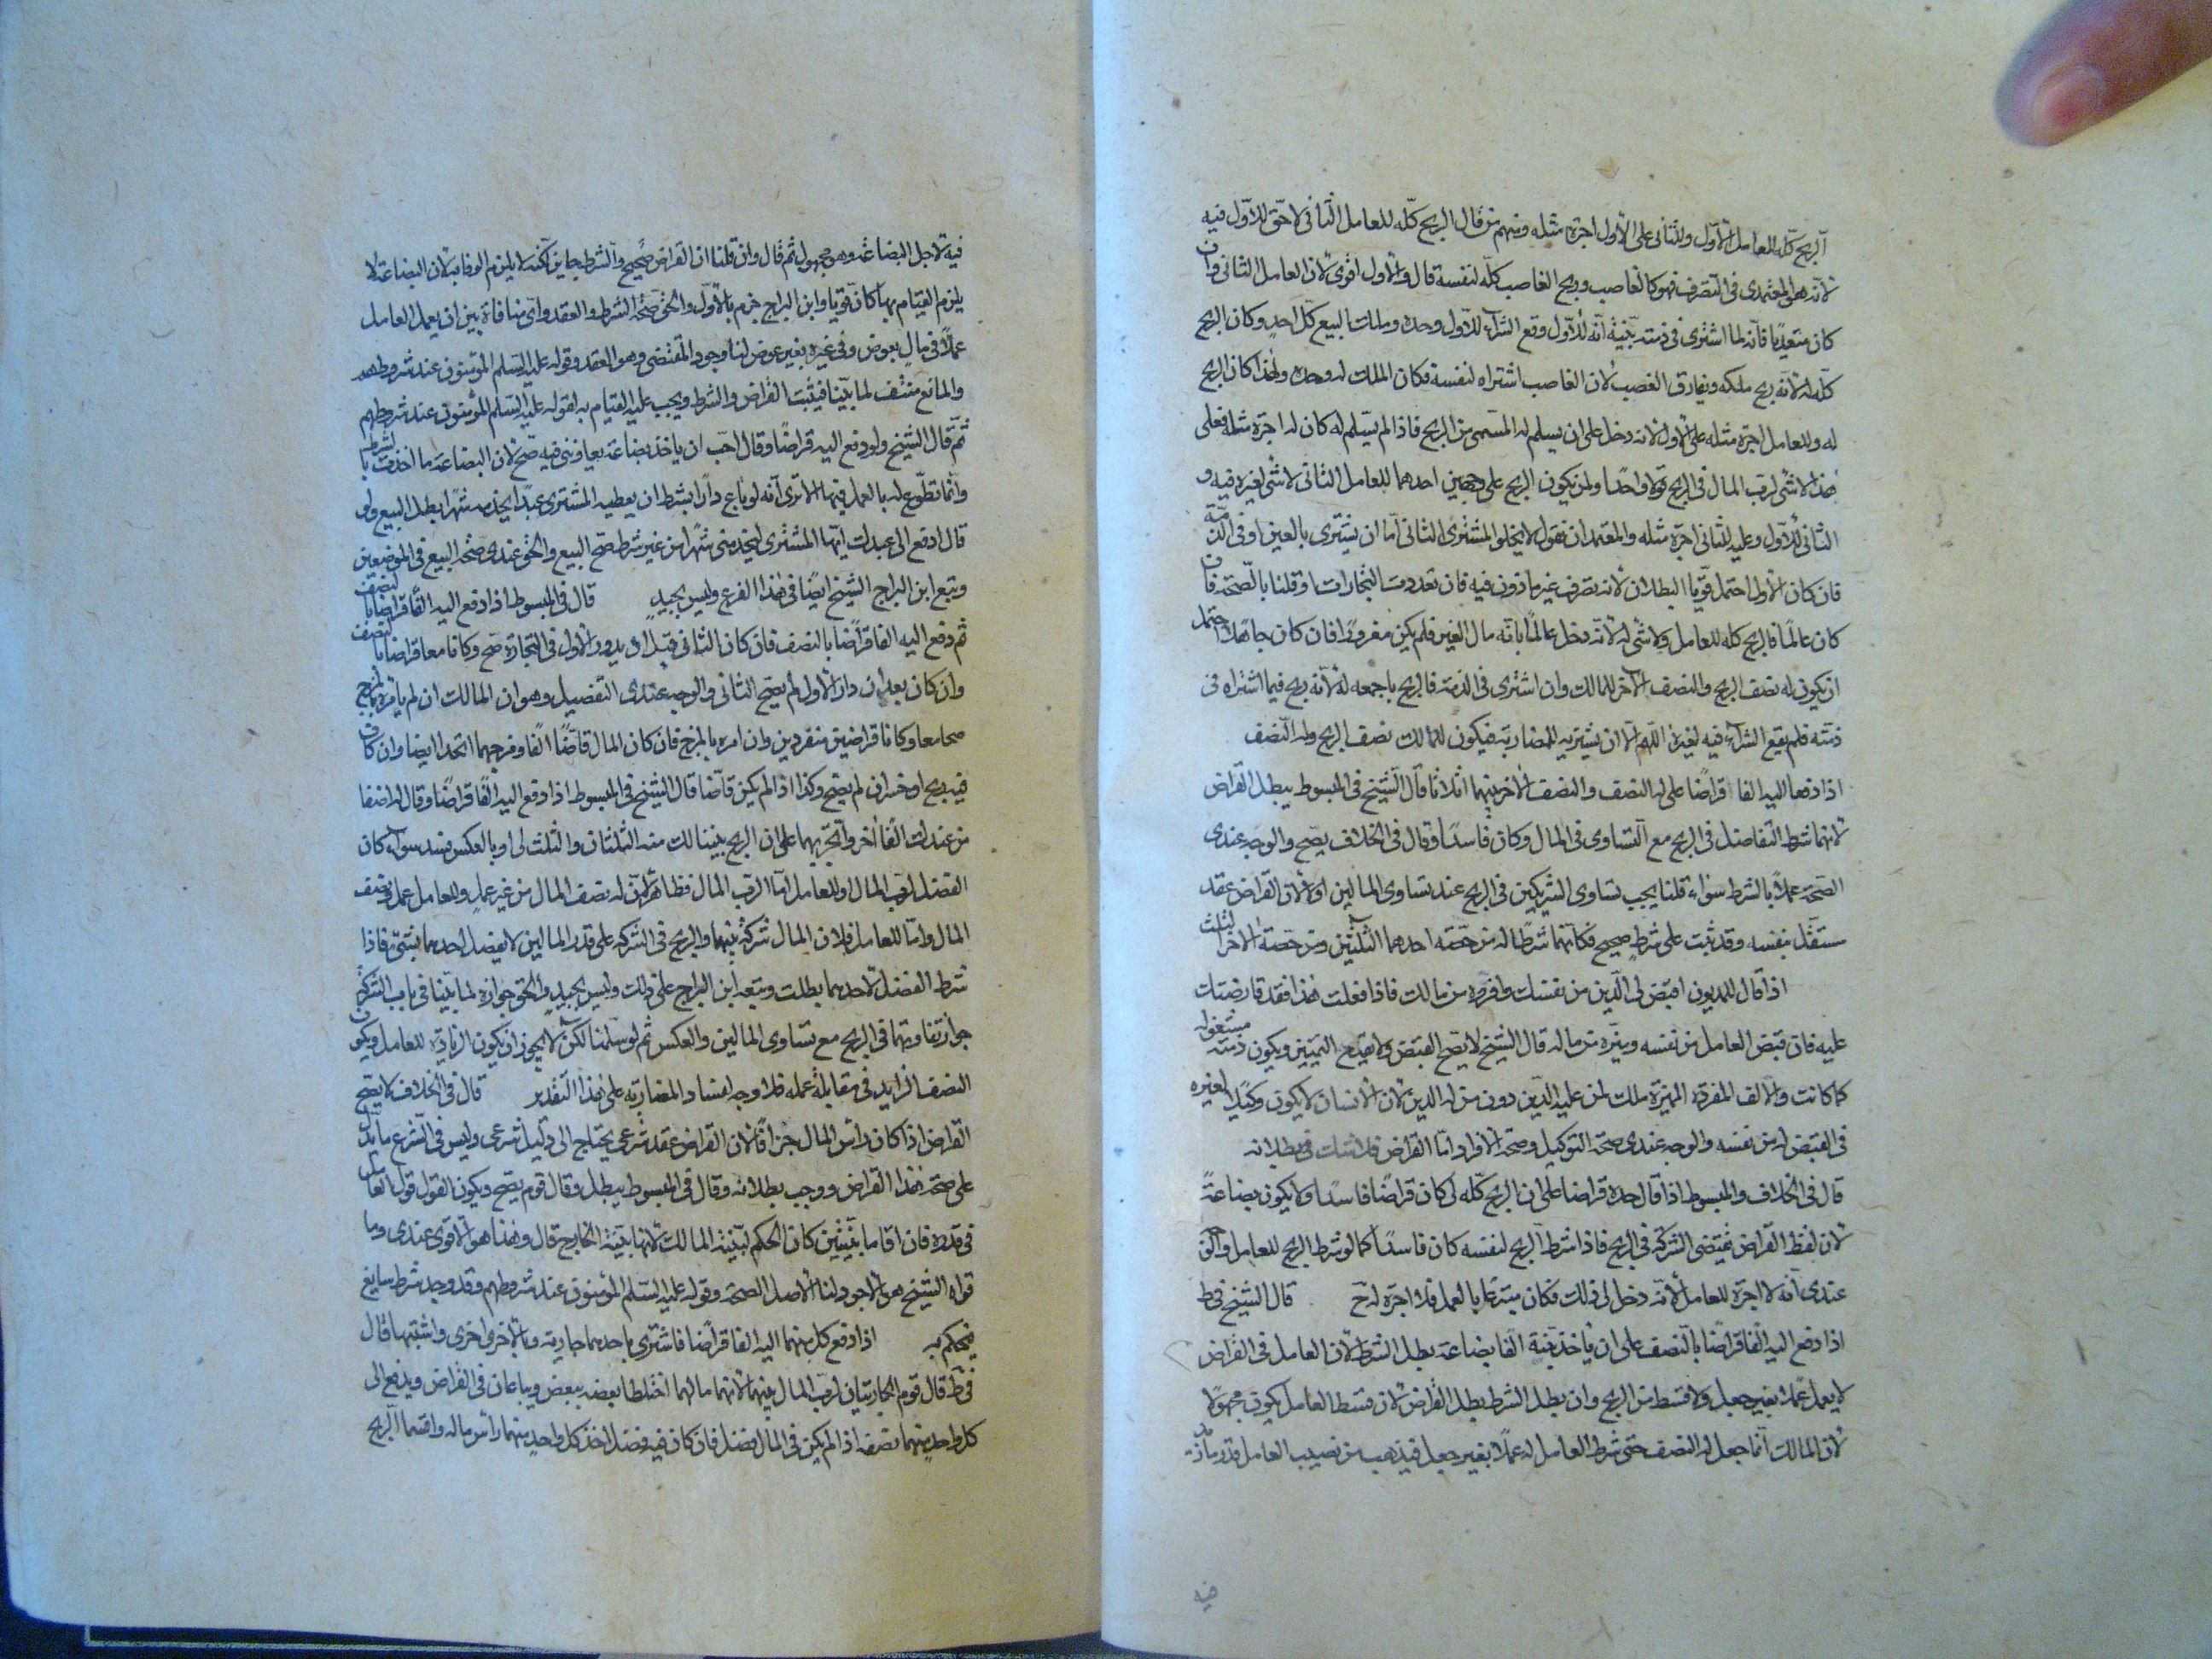 الربح كلّه للعامل الأوّل وللثاني على الأول اجرة مثله ومنهم من قال الربح كلّه للعامل الثاني لا حقّ للأوّل فيه
لأنّه هو المتعدى في التصرف فهو كالغاصب وربح الغاصب كلّه لنفسه قال والأول اقوى لأن العامل الثاني وان
كان متعدّيا فانّه لما اشترى في ذمته بنيّة أنّه للأوّل وقع الشراء للأوّل وحده وملك المبيع كلّ احد وكان الربح
كلّه له لأنّه ربح ملكه ويفارق الغصب لأن الغاصب اشتراه لنفسه فكان الملك له وحده ولهذا كان الربح
له وللعامل اجرة مثله على الأول لأنه دخل على ان يسلم له المسمى من الربح فاذا لم يسلم له كان له اجرة مثله فعلى
هذا لا شئ لرب المال في الربح قولا واحدا ولمن يكون الربح على وجهين احدهما للعامل الثاني لا شئ لغيره فيه و
الثاني للأوّل وعليه للثاني اجرة مثله والمعتمد ان نقول لا يخلو المشترى الثاني امّا ان يشترى بالعين او في الذمّة
فان كان الأول احتمل قويّا البطلان لأنه تصرف غير ماذون فيه فان تعددت التجارات او قلنا بالصّحة فان
كان عالمًا فالربح كله للعامل ولا شئ له لأنّه دخل عالمًا بانّه مال الغير فلم يكن مغرورا وان كان جاهلا احتمل
ان يكون له نصف الربح والنصف الآخر للمالك وان اشترى في الذمة فالربح باجمعه له لأنّه ربح فيما اشتراه في
ذمّته فلم يقع الشراء فيه لغيره اللّهم الّا ان يشتريه للمضاربة فيكون للمالك نصف الربح وله النصف
اذا دفعا اليه الفا قراضًا على له النصف والنصف الأخر بينهما اثلاثا قال الشيخ في المبسوط يبطل القراض
لانهما شرط التفاضل في الربح مع التساوى في المال وكان فاسدًا وقال في الخلاف يصح والوجه عندى
الصحة عملًا بالشرط سواء قلنا يجب تساوى الشريكين في الربح عند تساوى المالين اولا لان القراض عقد
مستقل بنفسه وقد ثبت على شرط صحيح فكانّهما شرطا له من حصّته احدهما الثلثين ومن حصّة الاخر الثلث
اذا قال للمديون اقبض لى الّدين من نفسك وافرزه من مالك فاذا فعلت هذا فقد قارضتك
عليه فان قبض العامل من نفسه وميّزه من ماله قال الشيخ لا يصّح القبض ولا يصّح التمييز ويكون ذمته مشغوله
كما كانت والالف المفردة المميزة ملك لمن عليه الدّين دون من له الدين لان الأنسان لا يكون وكيلًا لغيره
في القبض له من نفسه والوجه عندى صحّة التوكيل وصحة الافراد امّا القراض فلا شك في بطلانه
قال في الخلاف والمبسوط اذا قال خذه قراضا على ان الربح كلّه لى كان قراضًا فاسدًا ولا يكون بضاعة
لان لفظ القراض يقتضى الشركة في الربح فاذا شرط الربح لنفسه كان فاسدًا كما لو شرط الربح للعامل والحق
عندى انّه لا اجرة للعامل لأنّه دخل لى ذلك فكان متبرّعا بالعمل فلا اجرة له ح قال الشيخ في ط
اذا دفع اليه الفا قراضًا بالنصف على ان ياخذ منه الفا بضاعة بطل الشرط لان العامل في القراض
لا يعمل عملا بغير جعل ولا قسط من الربح وان بطل الشرط بطل القراض لان قسط العامل يكون مجهولًا
لان المالك انّما جعل له النصف حتى شرط العامل له عملًا بغير جعل فيذهب من نصيب العامل قدر ما زاده
فيه
فيه لاجل البضاعة وهو مجهول ثم قال وان قلنا ان القراض صحيح والشرط جايز لكنه لا يلزم الوفا به لان البضاعة لا
يلزم القيام بها كان قويا وابن البراج جزم بالأوّل والحق صحّة الشرط والعقد واى منافاة بين ان يعمل العامل
عملًا في مال بعوض وفي غيره بغير عوض لنا وجود المقتضى وهو العقد وقوله عليه السلم المؤمنون عند شروطهم
والمانع منتف لما بيّنا فيثبت القراض والشرط ويجب عليه القيام به لقوله عليه السلم المؤمنون عند شروطهم
ثمّ قال الشيخ ولو دفع اليه قراضًا وقال احبّ ان ياخذ بضاعة يعاونني فيه صّح لان البضاعة ما اخذت بالشرط
وانما تطوّع له بالعمل فيها الا ترى انّه لو باع دارًا بشرط ان يعطيه المشترى عبدًا يخدمه شهرًا بطل البيع ولو
قال ادفع الى عبدك ايّها المشترى ليخدمنى شهرا من غير شرط صّح البيع والحق عندى صحّة البيع في الموضعين
وتبع ابن البراج الشيخ ايضًا في هذا الفرع وليس بجيد قال في المبسوط اذا دفع اليه الفًا قراضا بالنصف
ثم دفع اليه الفا قراضًا بالنصف فان كان الثاني قبل ان يدور الأول في التجارة صّح وكانا معا قراضا بالنصف
وان كان بعد ان دار الأول لم يصّح الثاني والوجه عندى التفصيل وهو ان المالك ان لم يامره بالمزج
صحا معا وكانا قراضين منفردين وان امره بالمزج فان كان المال قاضًا الفا ومزجهما اتحدا ايضا وان كان
فيه ربح او خسران لم يصّح وكذا اذا لم يكن قاضا قال الشيخ في المبسوط اذا دفع اليه الفًا قراضًا وقال له اضف
من عندك الفًا اخر واتّجر بهما على ان الربح بيننا لك منه الثلثان والثلث لى او بالعكس فسد سواء كان
الفضل لرب المال او للعامل امّا لرب المال فظاهر لأن له نصف المال من غير عمل وللعامل عمل ونصف
المال وامّا للعامل فلان المال شركة بينهما والربح في الشركة على قدر المالين لا يفضل احدهما بشئ فاذا
شرط الفضل لاحدهما بطلت وتبعه ابن البراج على ذلك وليس بجيد والحق جوازه لما بيّنا في باب الشركة
جواز تفاوتهما في الربح مع تساوى المالين والعكس ثم لو سلّمنا لكن لم لا يجوز ان يكون الزيادة للعامل ويكون
النصف الزايد في مقابلة عمله فلا وجه لفساد المضاربة على هذا التقدير قال في الخلاف لا يصّح
القراض اذا كان راس المال جزافًا لان القراض عقد شرعى يحتاج الى دليل شرعى وليس في الشرع ما يدل
على صحّة هذا القراض ووجب بطلانه وقال في المبسوط يبطل وقال قوم يصّح ويكون القول قول العامل
في قدره فان اقاما بيّنتين كان الحكم لبيّنة المالك لأنها بيّنة الخارج قال وهذا هو الأقوى عندى وما
قواه الشيخ هو الأجود لنا الأصل الصحة وقوله عليه السلم المؤمنون عند شروطهم وقد وجد شرط سايغ
فيحكم به اذا دفع كل منهما اليه الفا قراضًا فاشترى باحدهما جارية وبالأخر اخرى واشتبها قال
في ط قال قوم الجاريتان لرب المال بينهما لأنهما مالهما اختلطا بعضه ببعض ويباعان في القراض ويدفع الى
كل واحد منهما نصفه اذا لم يكن في المال فضل فان كان فيه فضل اخذ كل واحد منهما راس ماله واقتسما الربح